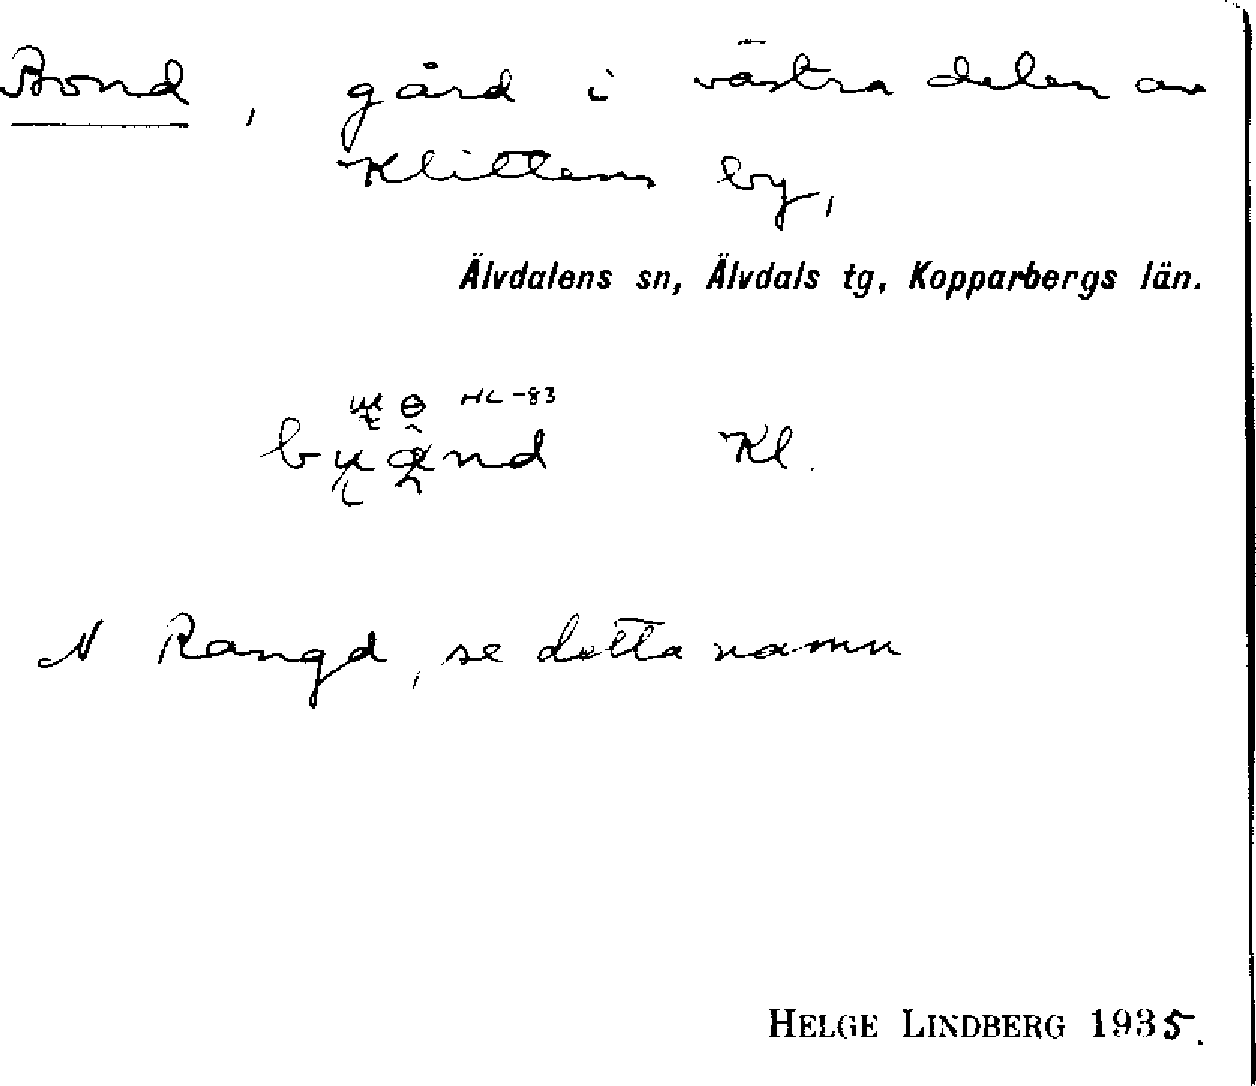 Bond, gård i västra delen av
Klittens by,
Älvdalens sn, Älvdals tg, Kopparbergs län.
HL -83
Kl.
N Rangd, se detta namn
HELGE LINDBERG 1935.